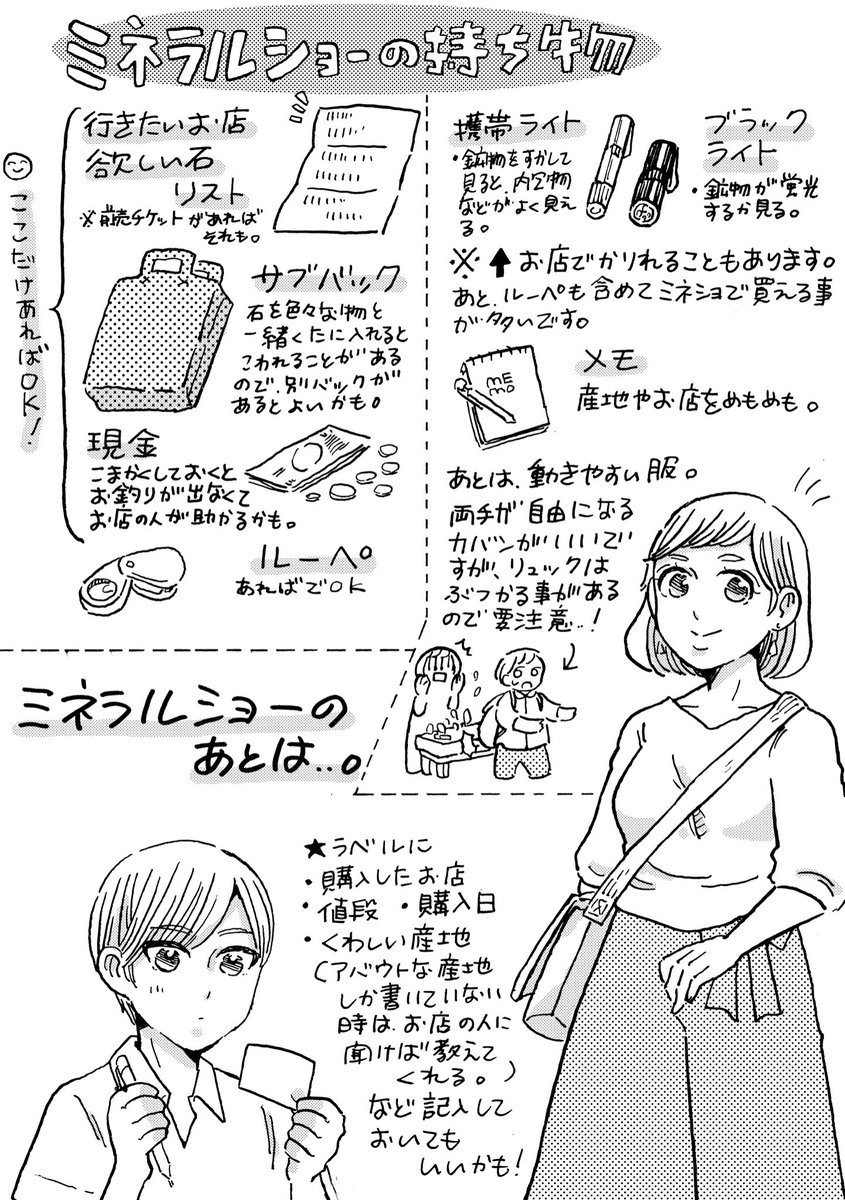 ミネラルショーの持ち物
ここだけあればOK!
行きたいお店
欲しい石
リスト
※前売チケットがあれば
それも。
サブバック
石を色々な物と
一緒くたに入れると
こわれることがある
ので、別バックが
あるとよいかも。
現金
こまかくしておくと
お釣りが出なくて
お店の人が助かるかも。
ルーペ
あればでOK
携帯ライト
・鉱物をすかして
見ると、内包物
などがよく見え
る。
ブラック
ライト
・鉱物が蛍光
するか見る。
※↑お店でかりれることもあります。
あと、ルーペも含めてミネショで買える事
が多いです。
MEMO
メモ
産地やお店をめもめも。
あとは、動きやすい服。
両手が自由になる
カバンがいいで
すが、リュックは
ぶつかる事がある
ので要注意..!
ミネラルショーの
あとは...。
★ラベルに
・購入したお店
・値段 ・購入日
・くわしい産地
(アバウトな産地
しか書いていない
時は、お店の人に
聞けば教えて
くれる。)
など記入して
おいても
いいかも!